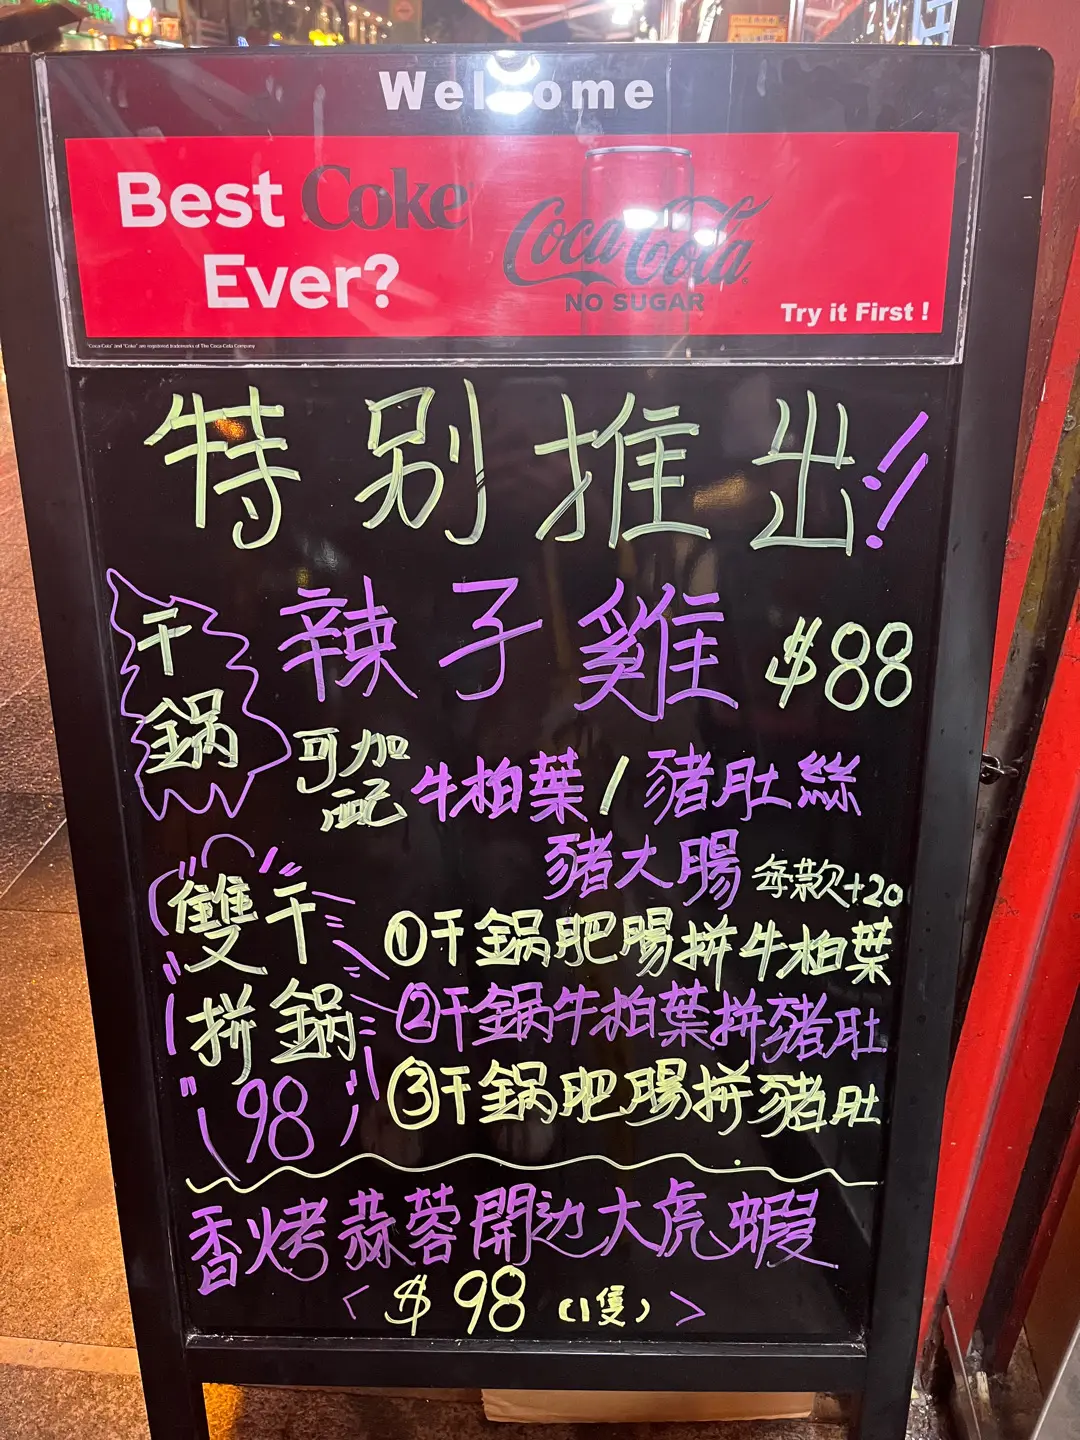 Welcome
Best Coke
Ever?
Coca-Cola
NO SUGAR
Try it First !
"Coca-Cola" and "Coke" are registered trademarks of The Coca-Cola Company
特别推出!!
干鍋
辣子雞 $88
可加配 牛柏葉 / 豬肚絲
豬大腸 每款+20
雙干
拼鍋
98
①干鍋肥腸拼牛柏葉
②干鍋牛柏葉拼豬肚
③干鍋肥腸拼豬肚
香烤蒜蓉開边大虎蝦
< $98 (1隻) >